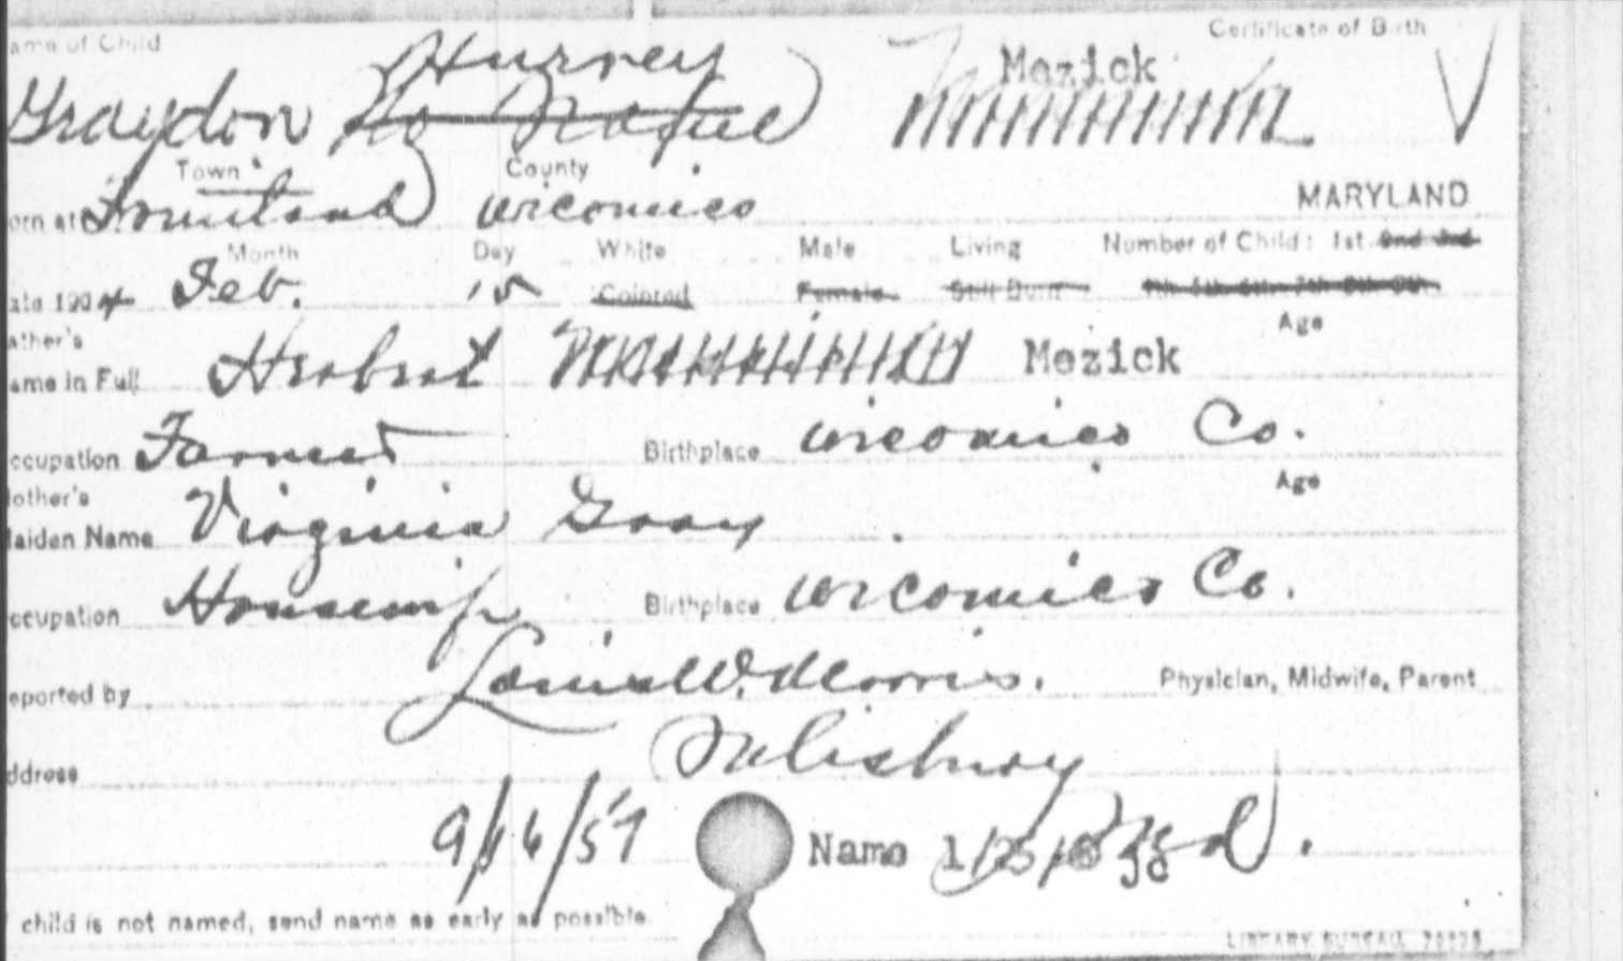 ame of Child Certificate of Birth
Hurvey Mezick
Graydon No Name
Town County
orn at Fruitland Wicomico MARYLAND
Month Day White Male Living Number of Child: 1st 2nd 3rd
ate 1904 Feb. 15 Colored Female Still Born 4th 5th 6th 7th 8th 9th
ather's Age
ame in Full Herbert Mezick
ccupation Farmer Birthplace Wicomico Co.
other's Age
aiden Name Virginia Gray
ccupation Housewife Birthplace Wicomico Co.
eported by Louis W. Morris. Physician, Midwife, Parent
ddress Salisbury
9/16/57 Name Md.
child is not named, send name as early as possible
LIBRARY BUREAU